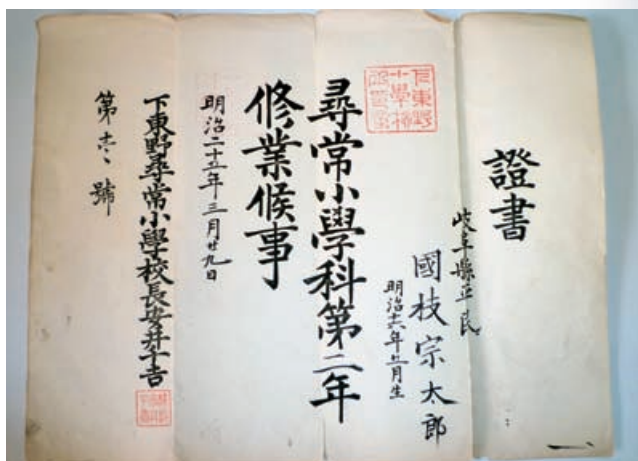 證書
岐阜縣平民
國枝宗太郎
明治十六年二月生
尋常小學科第二年
修業候事
明治二十五年三月廿九日
下東野尋常小學校長安井十吉
第壱號